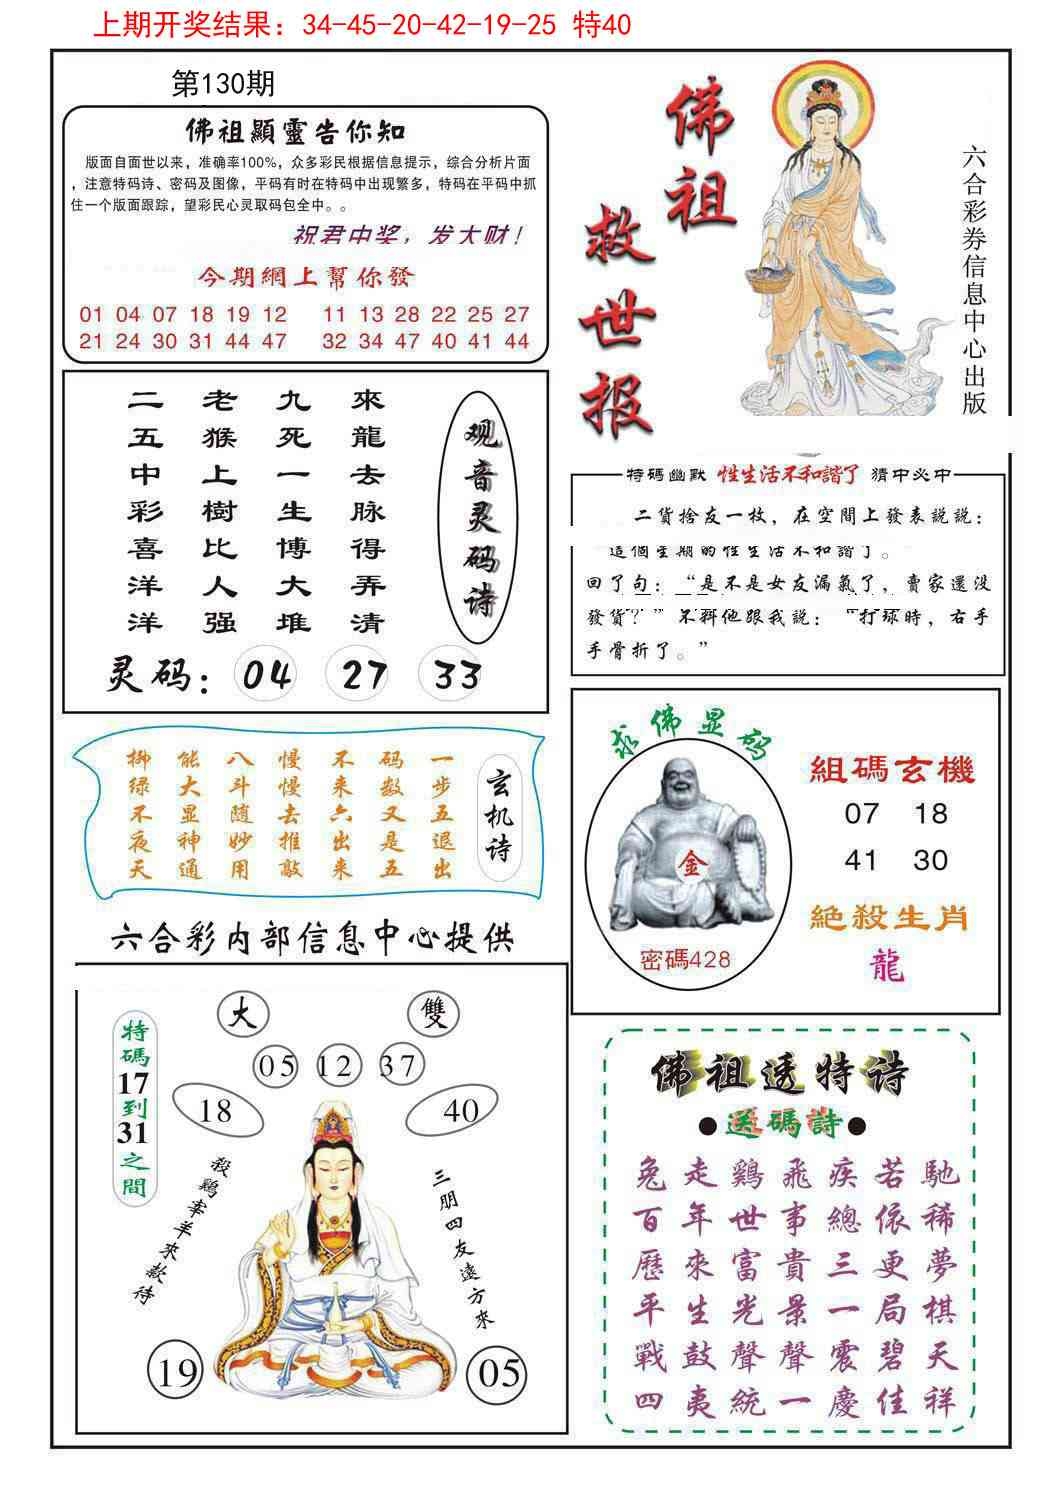 上期开奖结果：34-45-20-42-19-25 特40
第130期
佛祖顯靈告你知
版面自面世以来，准确率100%，众多彩民根据信息提示，综合分析片面
，注意特码诗、密码及图像，平码有时在特码中出现繁多，特码在平码中抓
住一个版面跟踪，望彩民心灵取码包全中。。
祝君中奖，发大财！
今期網上幫你發
01 04 07 18 19 12 11 13 28 22 25 27
21 24 30 31 44 47 32 34 47 40 41 44
佛祖
救世报
六合彩券信息中心出版
來龍去脉得弄清
九死一生博大堆
老猴上樹比人强
二五中彩喜洋洋
观音灵码诗
灵码：04 27 33
特碼幽默 性生活不和諧了 猜中必中
二貨捨友一枚，在空間上發表説説：
這個星期的性生活不和諧了。
回了句：“是不是女友漏氣了，賣家還没
發貨？” 不料他跟我説：“打球時，右手
手骨折了。”
玄机诗
一步五退出
码数又是五
不来六出来
慢慢去推敲
八斗随妙用
能大显神通
柳绿不夜天
六合彩内部信息中心提供
求佛显码
金
密碼428
組碼玄機
07 18
41 30
絕殺生肖
龍
特碼17到31之間
大 雙
05 12 37
18 40
殺鷄宰羊來款待
三朋四友遠方來
19 05
佛祖透特诗
●送碼詩●
兔走鷄飛疾若馳
百年世事總依稀
歷來富貴三更夢
平生光景一局棋
戰鼓聲聲震碧天
四夷統一慶佳祥